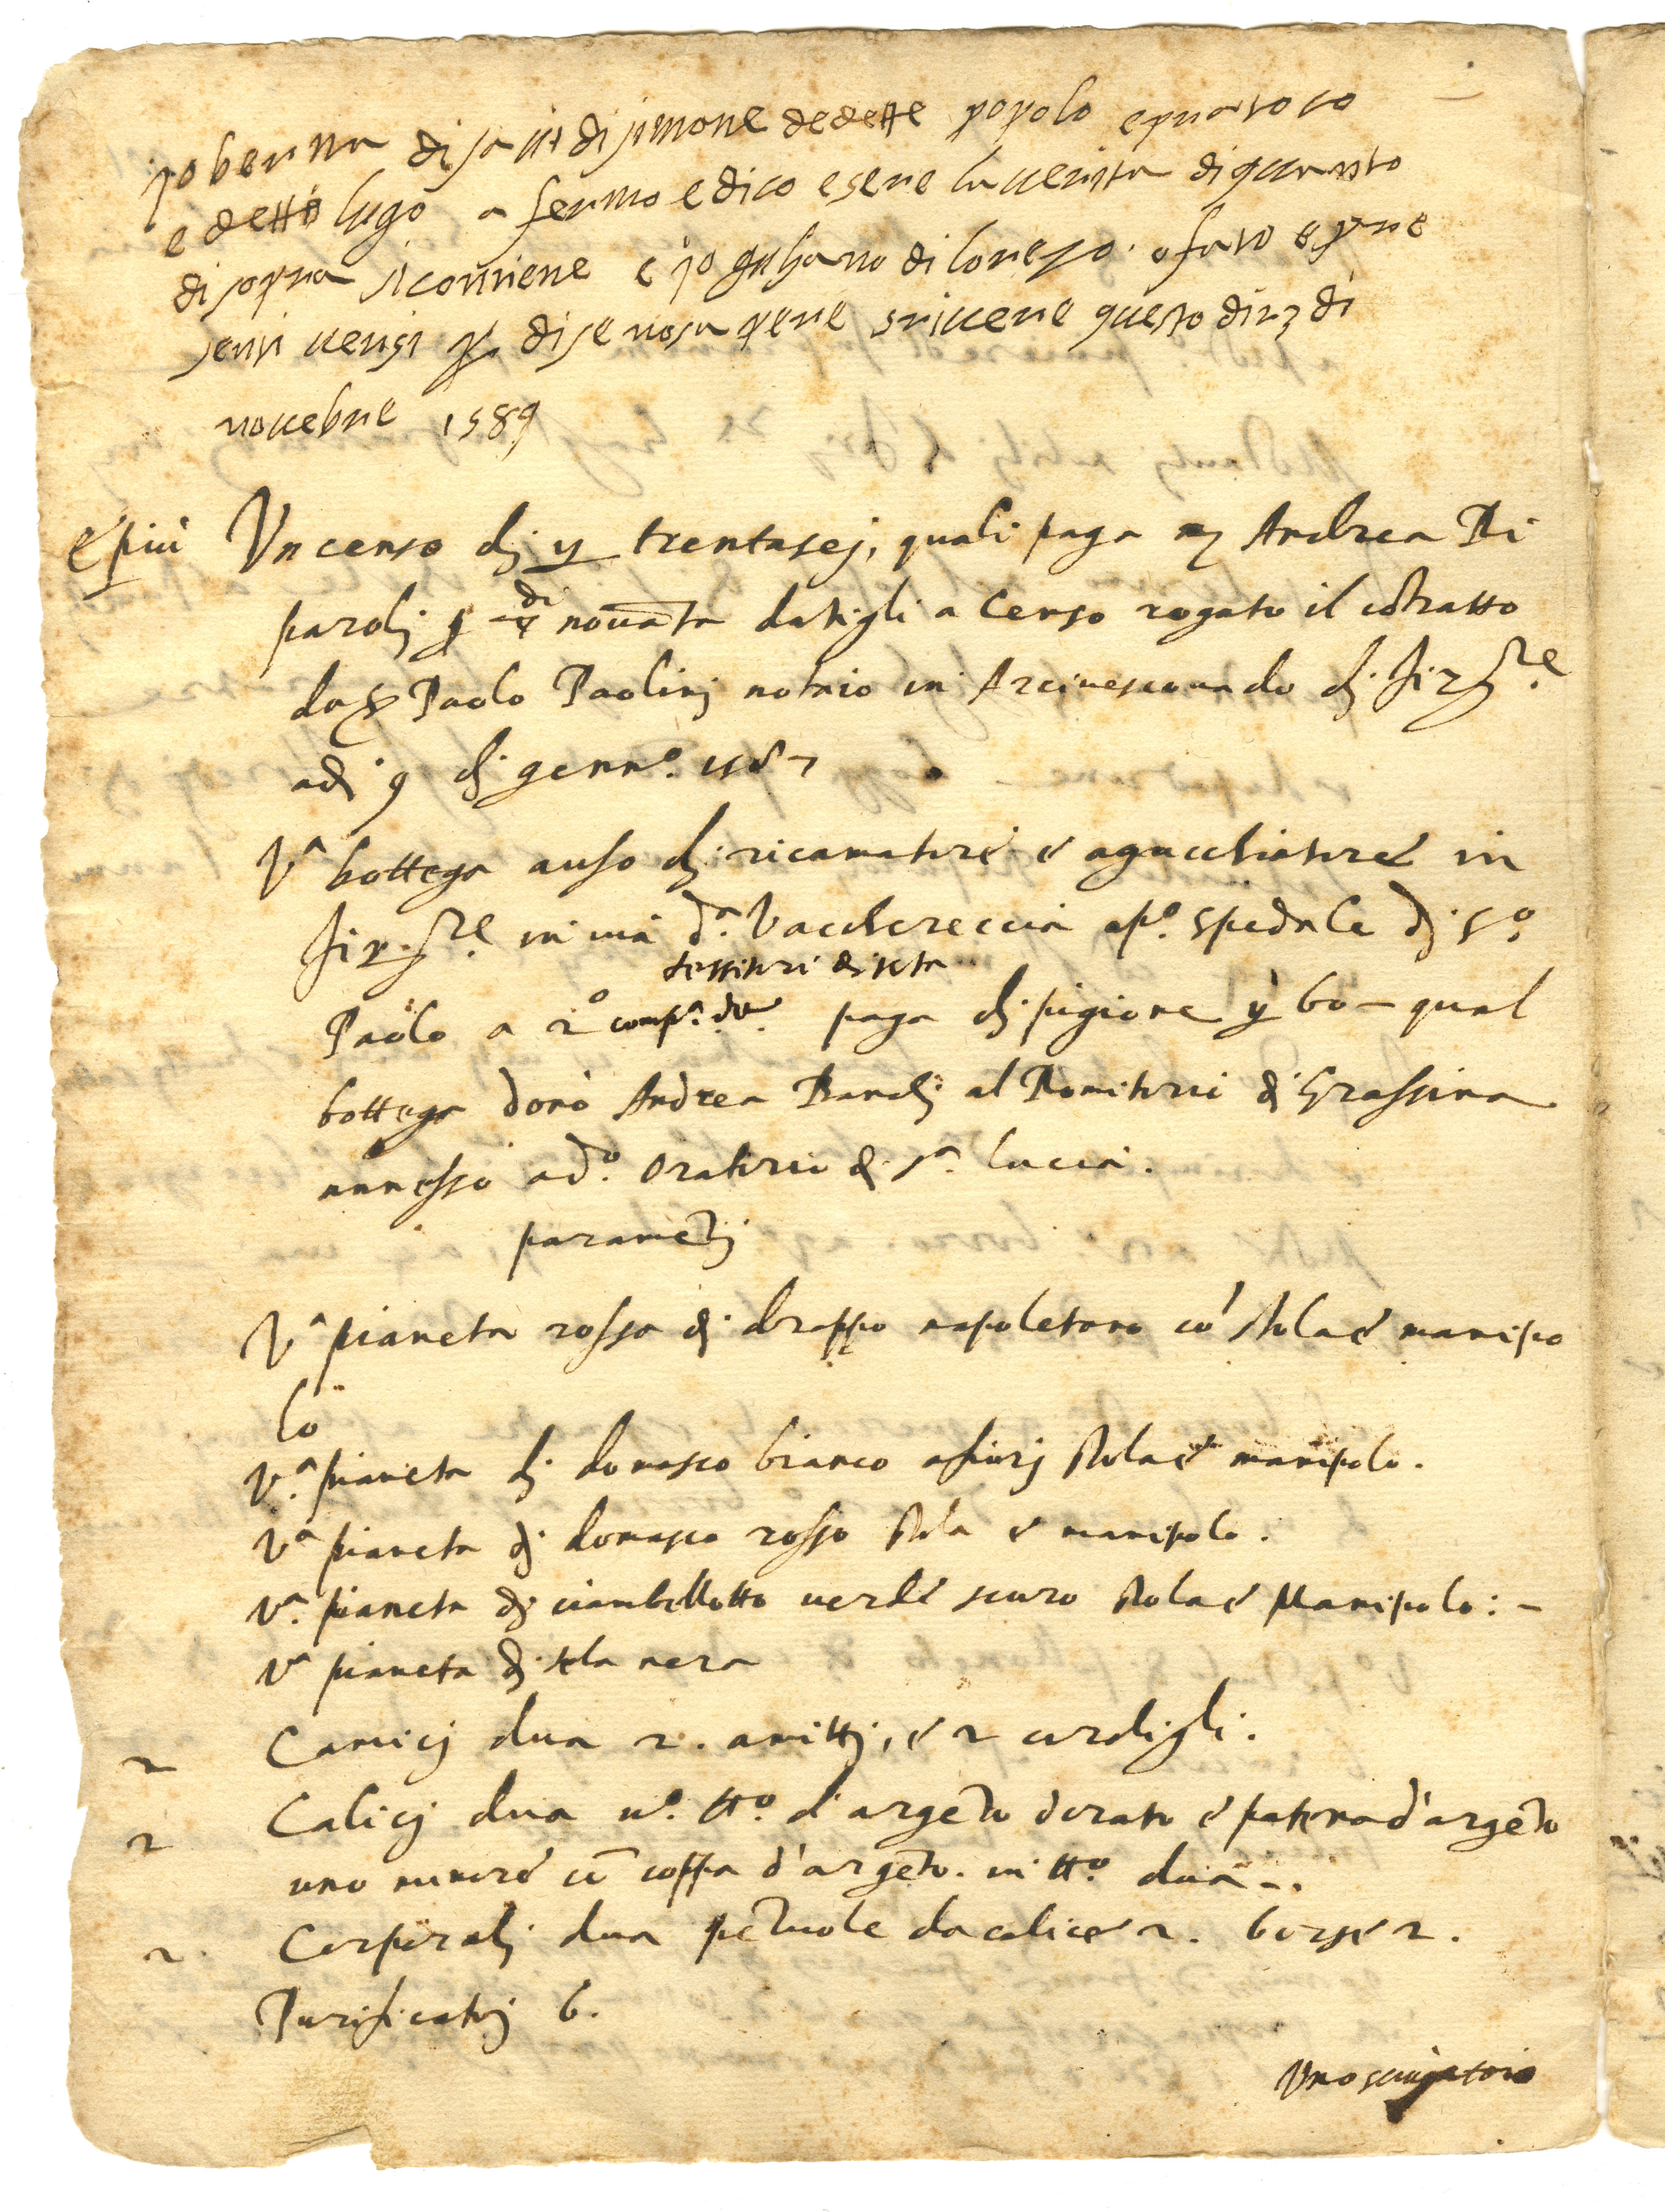 jo berna di santi di simone dedette popolo epuatoso
e detto lugo a fermo e dico esere la uerita di quanto
di sopra si contiene e jo guliano di lorenzo o fato e pre
senti uersi p di se nosa pere sriuere questo di 23 di
nouebre 1589
E più Vn censo dj y trentasej, quali paga mj Andrea Bi
parolj p di nouāta datigli a Censo rogato il cōtratto
da s Paolo Paolinj notaio in Arciuescouado dj Firze
adj 9 dj gennº. 1587
Vª bottega auso dj ricamatore e agucchiatore in
Firze in uia dª. Vacchereccia apº. spedale dj Sº
tessitori di seta
Paolo a 2º compª. due. paga dj pigione y 60 – qual
bottega donò Andrea Bandj al Romitorio dj Grassina
annesso adº. Oratorio dj Sª. Lucia.
parametj
Vª pianeta rossa dj drappo napoletano cō stola e manipo
lo
Vª. pianeta dj domasco bianco afiorj stola e manipolo.
Vª pianeta dj domasco rosso stola e manipolo.
Vª. pianeta dj ciambellotto uerde scuro stola e Manipolo: –
Vª pianeta dj tela nera
2 Camicj dua 2. amittj, e 2 cordigli.
2 Calicj dua uº. ttº. d'argēto dorato e patena d'argēto
uno minore cō coppa d'argēto. in ttº dua –.
2. Corporalj dua petuole da calice 2. borse 2.
Purificatoj 6.
Vno sciugatoio